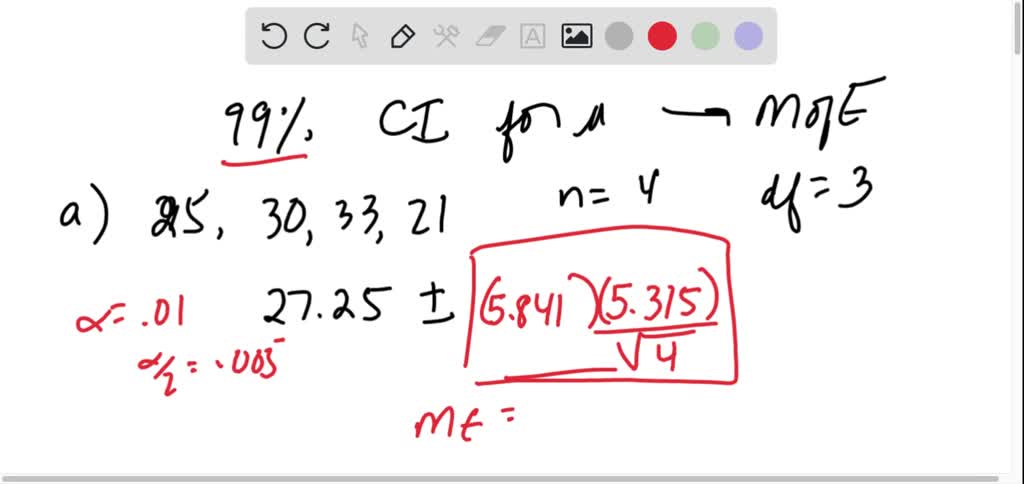 99% CI for μ — MofE
a) 25, 30, 33, 21 n = 4 df = 3
α = .01 27.25 ± (5.841)(5.315)
α/2 = .005 √4
ME =